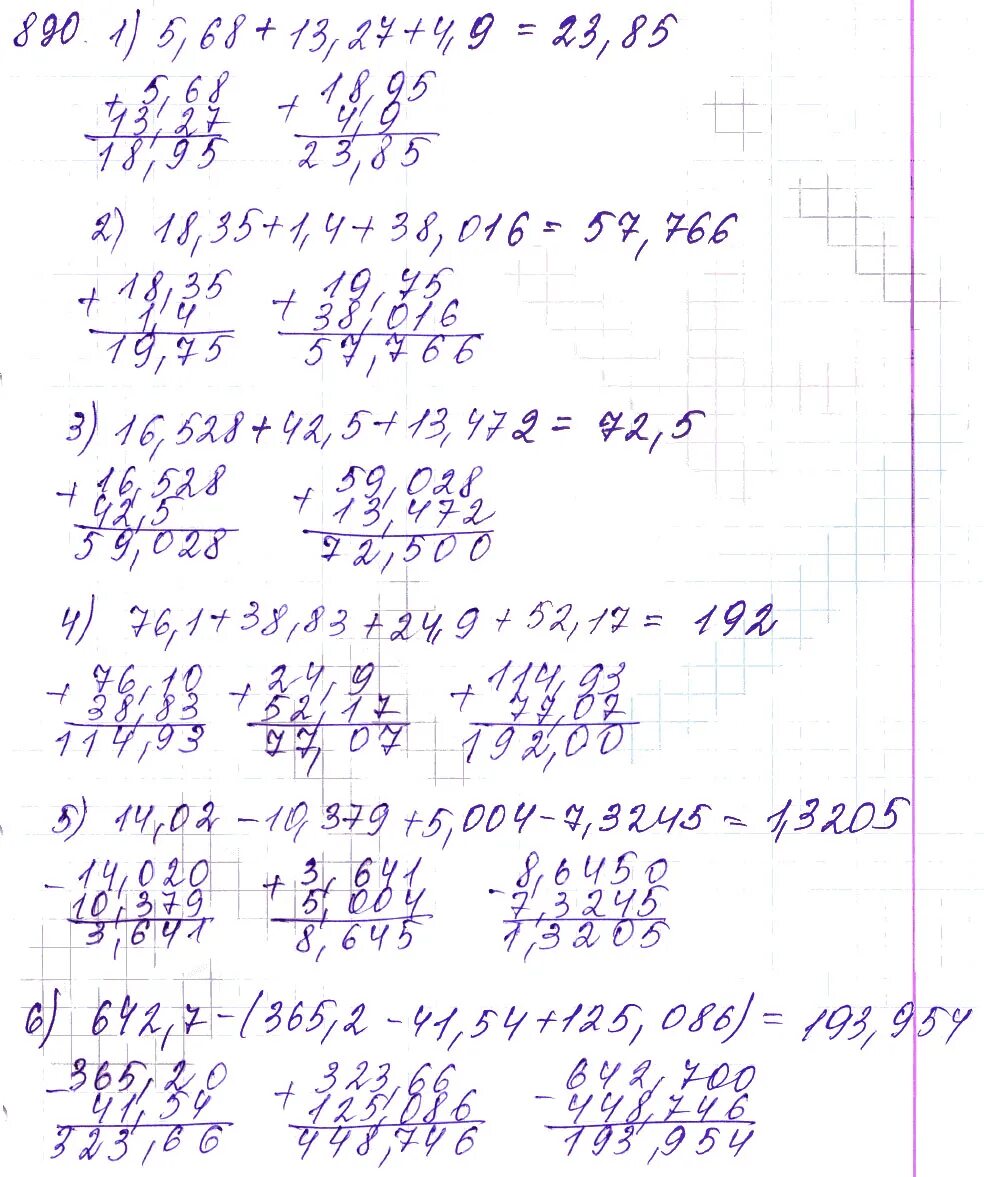 890. 1) 5,68 + 13,27 + 4,9 = 23,85
+ 5,68 + 18,95
13,27 4,9
18,95 23,85
2) 18,35 + 1,4 + 38,016 = 57,766
+ 18,35 + 19,75
1,4 38,016
19,75 57,766
3) 16,528 + 42,5 + 13,472 = 72,5
+ 16,528 + 59,028
42,5 13,472
59,028 72,500
4) 76,1 + 38,83 + 24,9 + 52,17 = 192
+ 76,10 + 24,9 + 114,93
38,83 52,17 77,07
114,93 77,07 192,00
5) 14,02 - 10,379 + 5,004 - 7,3245 = 1,3205
- 14,020 + 3,641 - 8,6450
10,379 5,004 7,3245
3,641 8,645 1,3205
6) 642,7 - (365,2 - 41,54 + 125,086) = 193,954
- 365,20 + 323,66 - 642,700
41,54 125,086 448,746
323,66 448,746 193,954